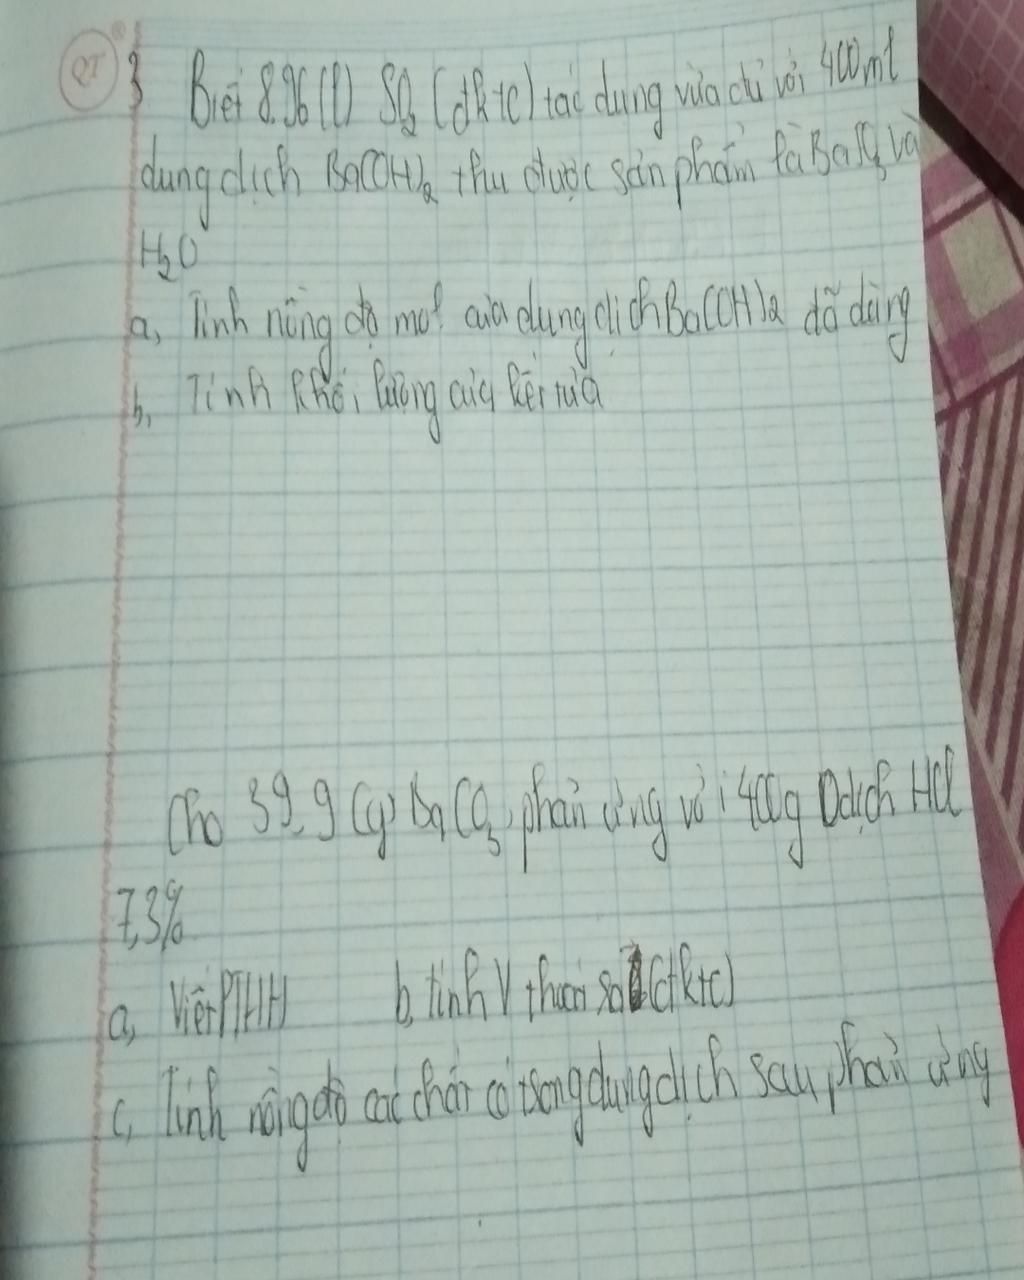 QT 3 Biết 8.96 (l) SO2 (đktc) tác dụng vừa đủ với 400ml
dung dịch Ba(OH)2 thu được sản phẩm là BaSO3 và
H2O
a, Tính nồng độ mol của dung dịch Ba(OH)2 đã dùng
b, Tính khối lượng của kết tủa
Cho 39,9 (g) BaCO3 phản ứng với 400g Ddịch HCl
7,3%
a, Viết PTHH b, tính V thoát (đktc)
c, Tính nồng độ các chất có trong dung dịch sau phản ứng